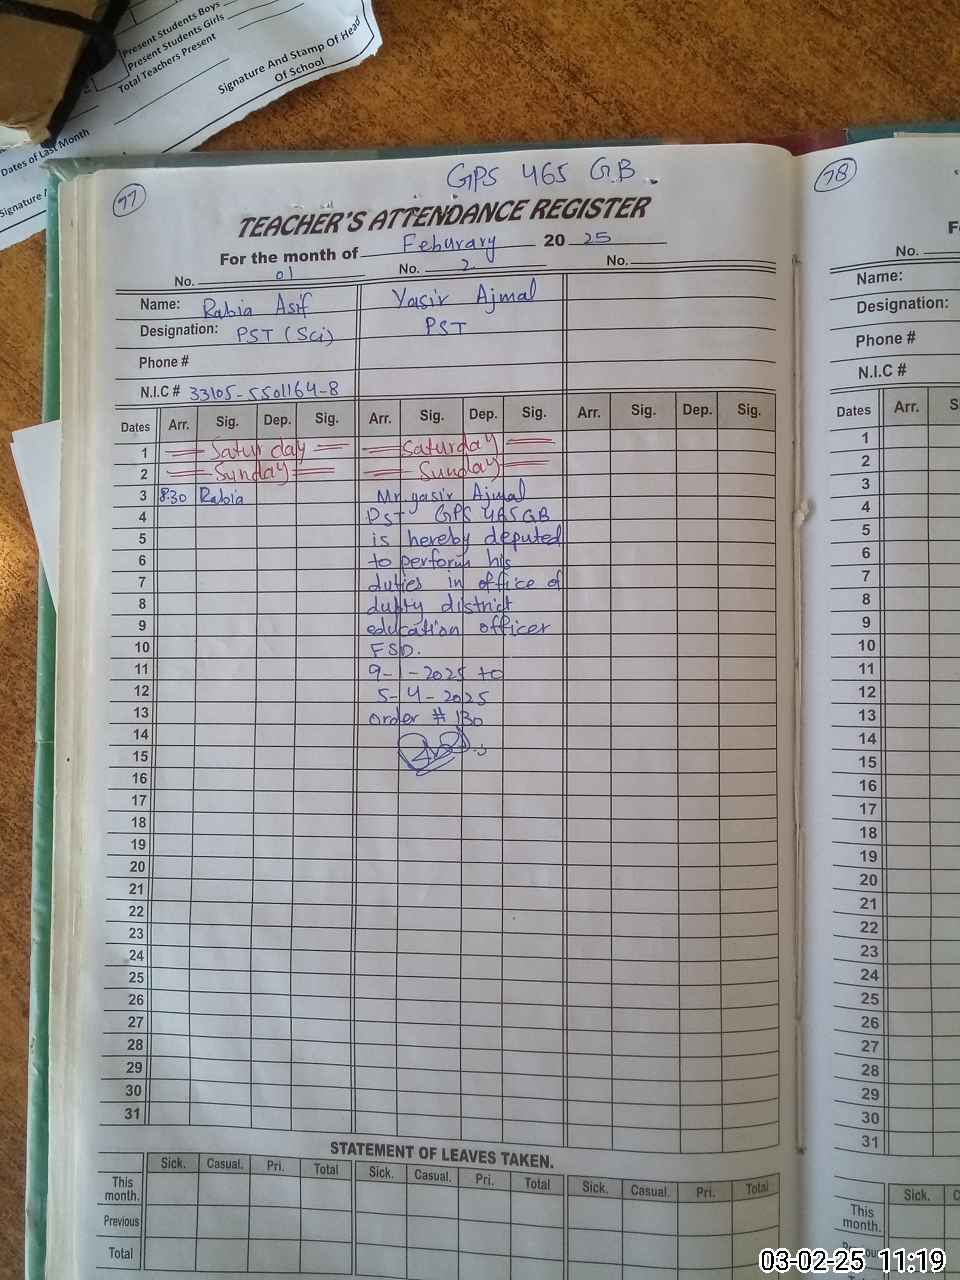 Present Students Boys
Present Students Girls
Total Teachers Present
Signature And Stamp Of Head
Of School
Dates of Last Month
Signature
77
GPS 465 GB
TEACHER'S ATTENDANCE REGISTER
For the month of Feburary 20 25
No. 01 No. 2 No.
Name: Rabia Asif Yasir Ajmal
Designation: PST (Sci) PST
Phone #
N.I.C # 33105-5501164-8
Dates Arr. Sig. Dep. Sig. Arr. Sig. Dep. Sig. Arr. Sig. Dep. Sig.
1 Saturday Saturday
2 Sunday Sunday
3 8:30 Rabia Mr. yasir Ajmal
4 PST GPS 465 GB
5 is hereby deputed
6 to perform his
7 duties in office of
8 duputy district
9 education officer
10 FSD.
11 9-1-2025 to
12 5-4-2025
13 order # 130
14
15
16
17
18
19
20
21
22
23
24
25
26
27
28
29
30
31
STATEMENT OF LEAVES TAKEN.
Sick. Casual. Pri. Total Sick. Casual. Pri. Total Sick. Casual. Pri. Total
This
month.
Previous
Total
78
F
No.
Name:
Designation:
Phone #
N.I.C #
Dates Arr. S
1
2
3
4
5
6
7
8
9
10
11
12
13
14
15
16
17
18
19
20
21
22
23
24
25
26
27
28
29
30
31
Sick. C
This
month.
03-02-25 11:19